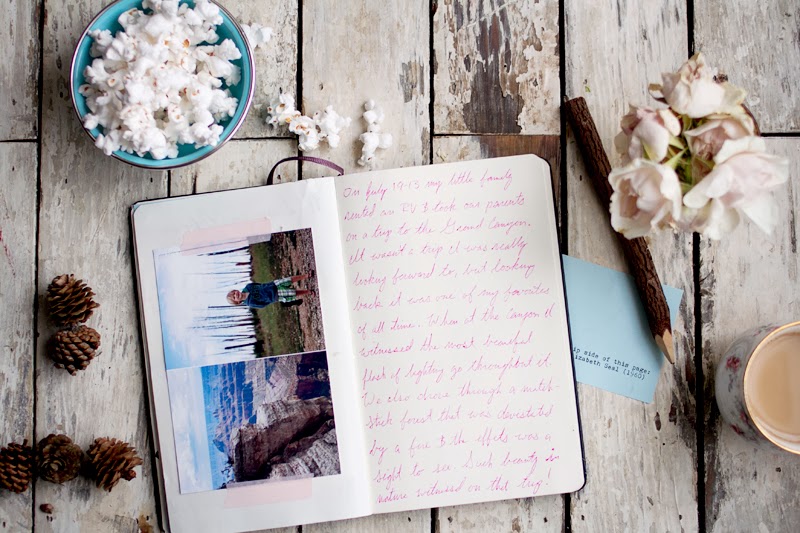 In July 19-15 my little family
rented an RV & took our parents
on a trip to the Grand Canyon.
It wasn't a trip I was really
looking forward to, but looking
back it was one of my favorites
of all time. When at the Canyon I
witnessed the most beautiful
flash of lighting go throughout it.
We also drove through a match-
stick forest that was devistated
by a fire & the effects was a
sight to see. Such beauty in
nature witnessed on that trip!
ip side of this page:
lizabeth Seal (1960)